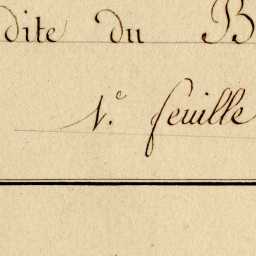 dite du B
1.e feuille